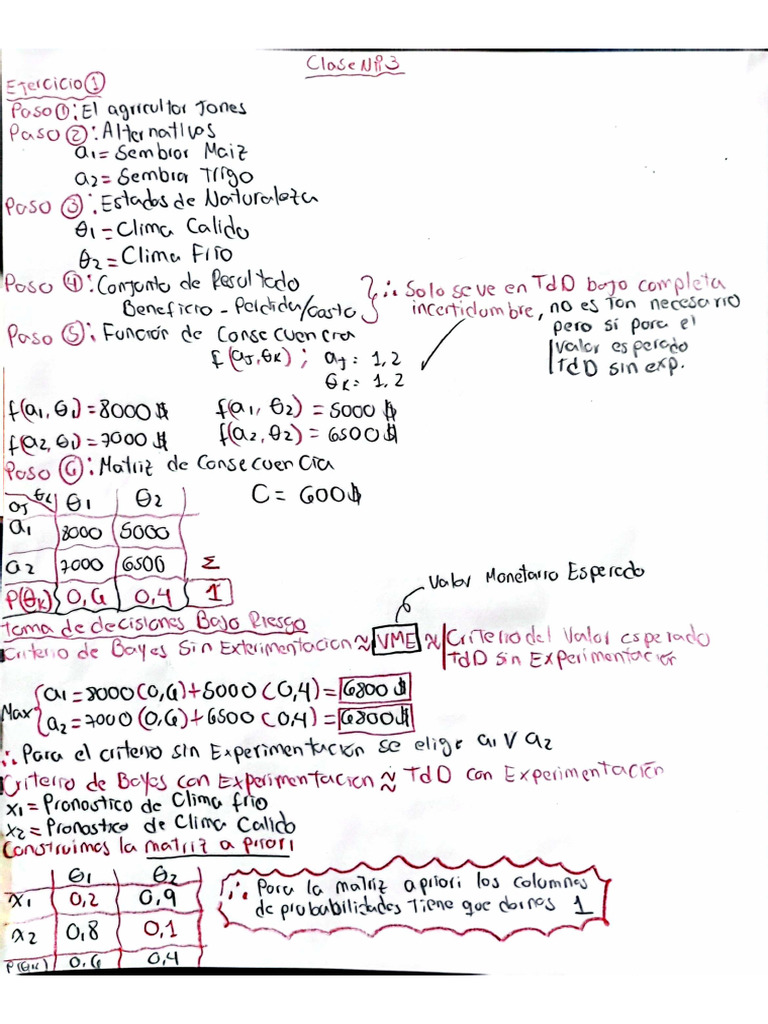 Clase Nº3
Ejercicio 1
Paso 1: El agricultor Jones
Paso 2: Alternativas
a1 = Sembrar Maiz
a2 = Sembrar Trigo
Paso 3: Estados de Naturaleza
θ1 = Clima Calido
θ2 = Clima Frio
Paso 4: Conjunto de Resultado
Beneficio - Perdida/Costo
∴ Solo se ve en TdD bajo completa
incertidumbre, no es tan necesario
pero si para el
Valor esperado
TdD sin exp.
Paso 5: Función de Consecuencia
f(aj, θk) ; aj = 1,2
θk = 1,2
f(a1, θ1) = 8000 $ f(a1, θ2) = 5000 $
f(a2, θ1) = 7000 $ f(a2, θ2) = 6500 $
Paso 6: Matriz de Consecuencia
C = 600$
aj θk θ1 θ2
a1 8000 5000
a2 7000 6500 Σ
P(θk) 0,6 0,4 1
Valor Monetario Esperado
Toma de decisiones Bajo Riesgo
Criterio de Bayes Sin Exterimentacion ≈ VME ≈ Criterio del Valor esperado
TdD sin Experimentación
Max a1 = 8000(0,6) + 5000(0,4) = 6800 $
a2 = 7000(0,6) + 6500(0,4) = 6800 $
∴ Para el criterio sin Experimentación se elige a1 V a2
Criterio de Bayes con Experimentacion ≈ TdD con Experimentación
x1 = Pronostico de Clima frio
x2 = Pronostico de Clima Calido
Construimos la matriz a priori
θ1 θ2
x1 0,2 0,9
x2 0,8 0,1
P(θk) 0,6 0,4
∴ Para la matriz apriori los columnas
de probabilidades tiene que darnos 1